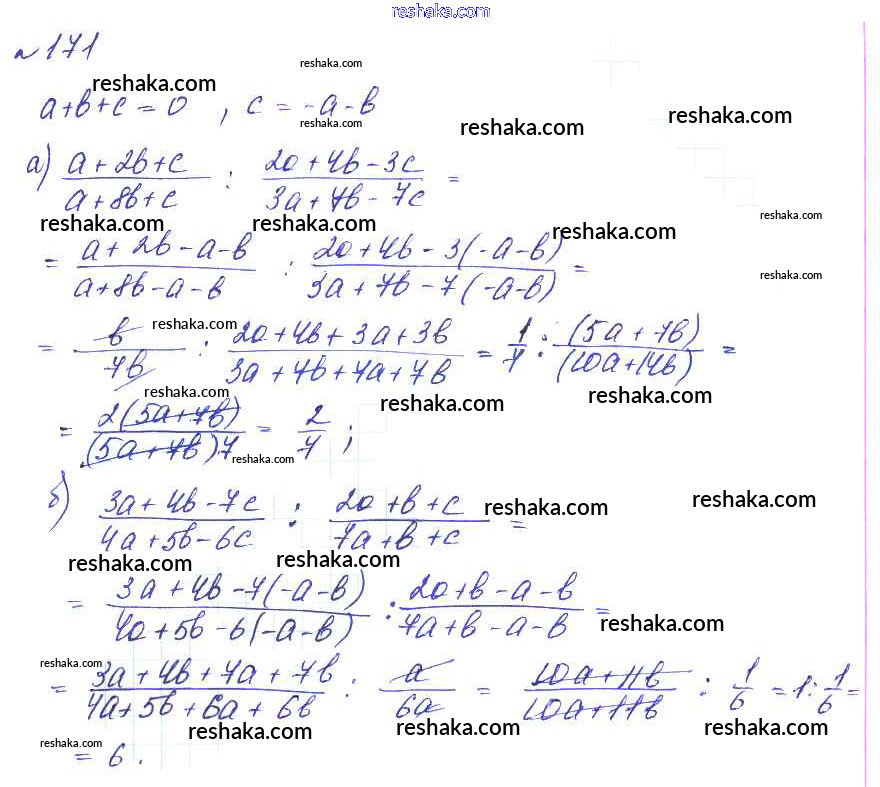 reshaka.com
№171
reshaka.com
reshaka.com
a+b+c=0 , c=-a-b
reshaka.com
reshaka.com
reshaka.com
а) (a+2b+c)/(a+8b+c) : (2a+4b-3c)/(3a+7b-7c) =
reshaka.com
reshaka.com
reshaka.com
reshaka.com
= (a+2b-a-b)/(a+8b-a-b) : (2a+4b-3(-a-b))/(3a+7b-7(-a-b)) =
reshaka.com
reshaka.com
= b/7b : (2a+4b+3a+3b)/(3a+7b+7a+7b) = 1/7 : (5a+7b)/(10a+14b) =
reshaka.com
reshaka.com
reshaka.com
= 2(5a+7b)/(5a+7b)7 = 2/7 ;
reshaka.com
б) (3a+4b-7c)/(4a+5b-6c) : (2a+b+c)/(7a+b+c) =
reshaka.com
reshaka.com
reshaka.com
reshaka.com
= (3a+4b-7(-a-b))/(4a+5b-6(-a-b)) : (2a+b-a-b)/(7a+b-a-b) =
reshaka.com
reshaka.com
= (3a+4b+7a+7b)/(4a+5b+6a+6b) : a/6a = (10a+11b)/(10a+11b) : 1/6 = 1 : 1/6 =
reshaka.com
reshaka.com
reshaka.com
reshaka.com
= 6 .